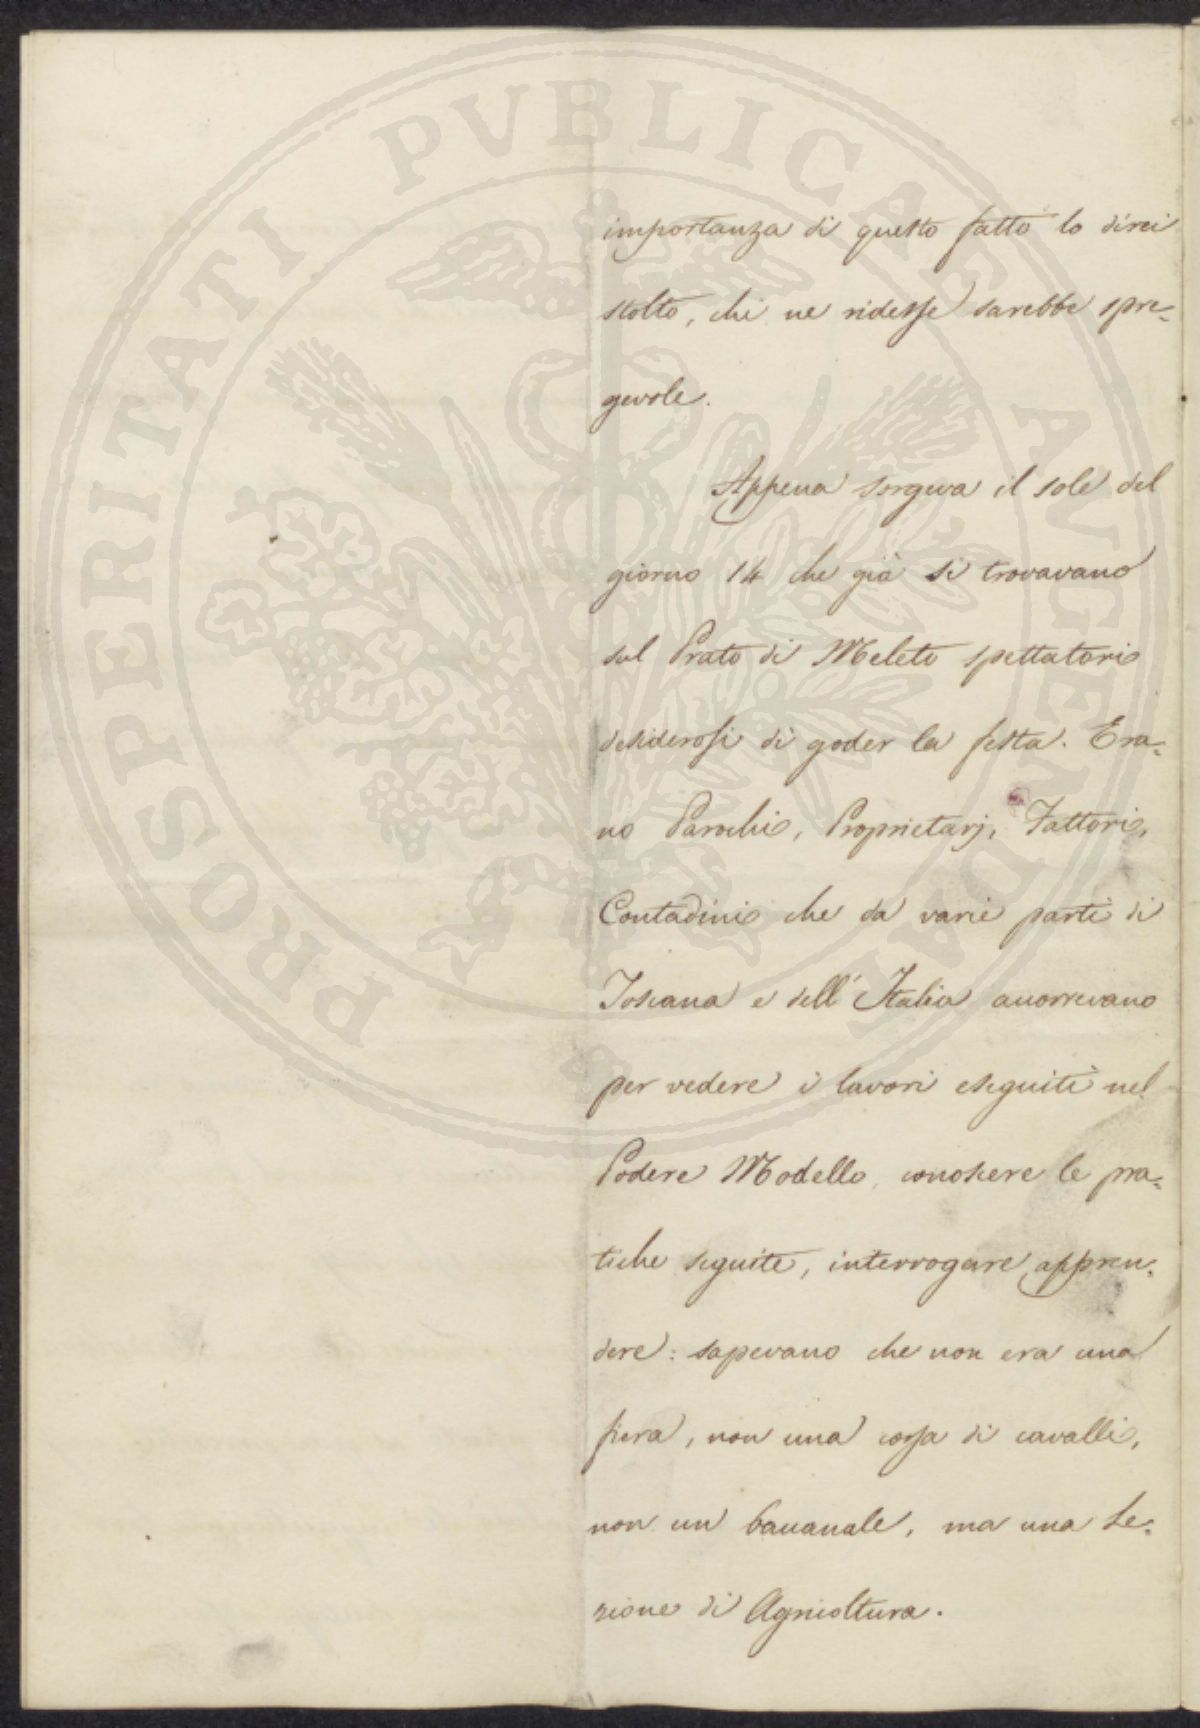 PROSPERITATI PVBLICAE AVGENDAE
importanza di questo fatto lo direi
stolto, chi ne ridesse sarebbe spre-
gevole.
Appena sorgeva il sole del
giorno 14 che già si trovavano
sul Prato di Meleto spettatori
desiderosi di goder la festa. Era-
no Parochi, Proprietarj, Fattori,
Contadini che da varie parti di
Toscana e dell'Italia accorrevano
per vedere i lavori eseguiti nel
Podere Modello, conoscere le pra-
tiche seguite, interrogare appren-
dere: sapevano che non era una
fiera, non una corsa di cavalli,
non un baccanale, ma una Le-
zione di Agricoltura.